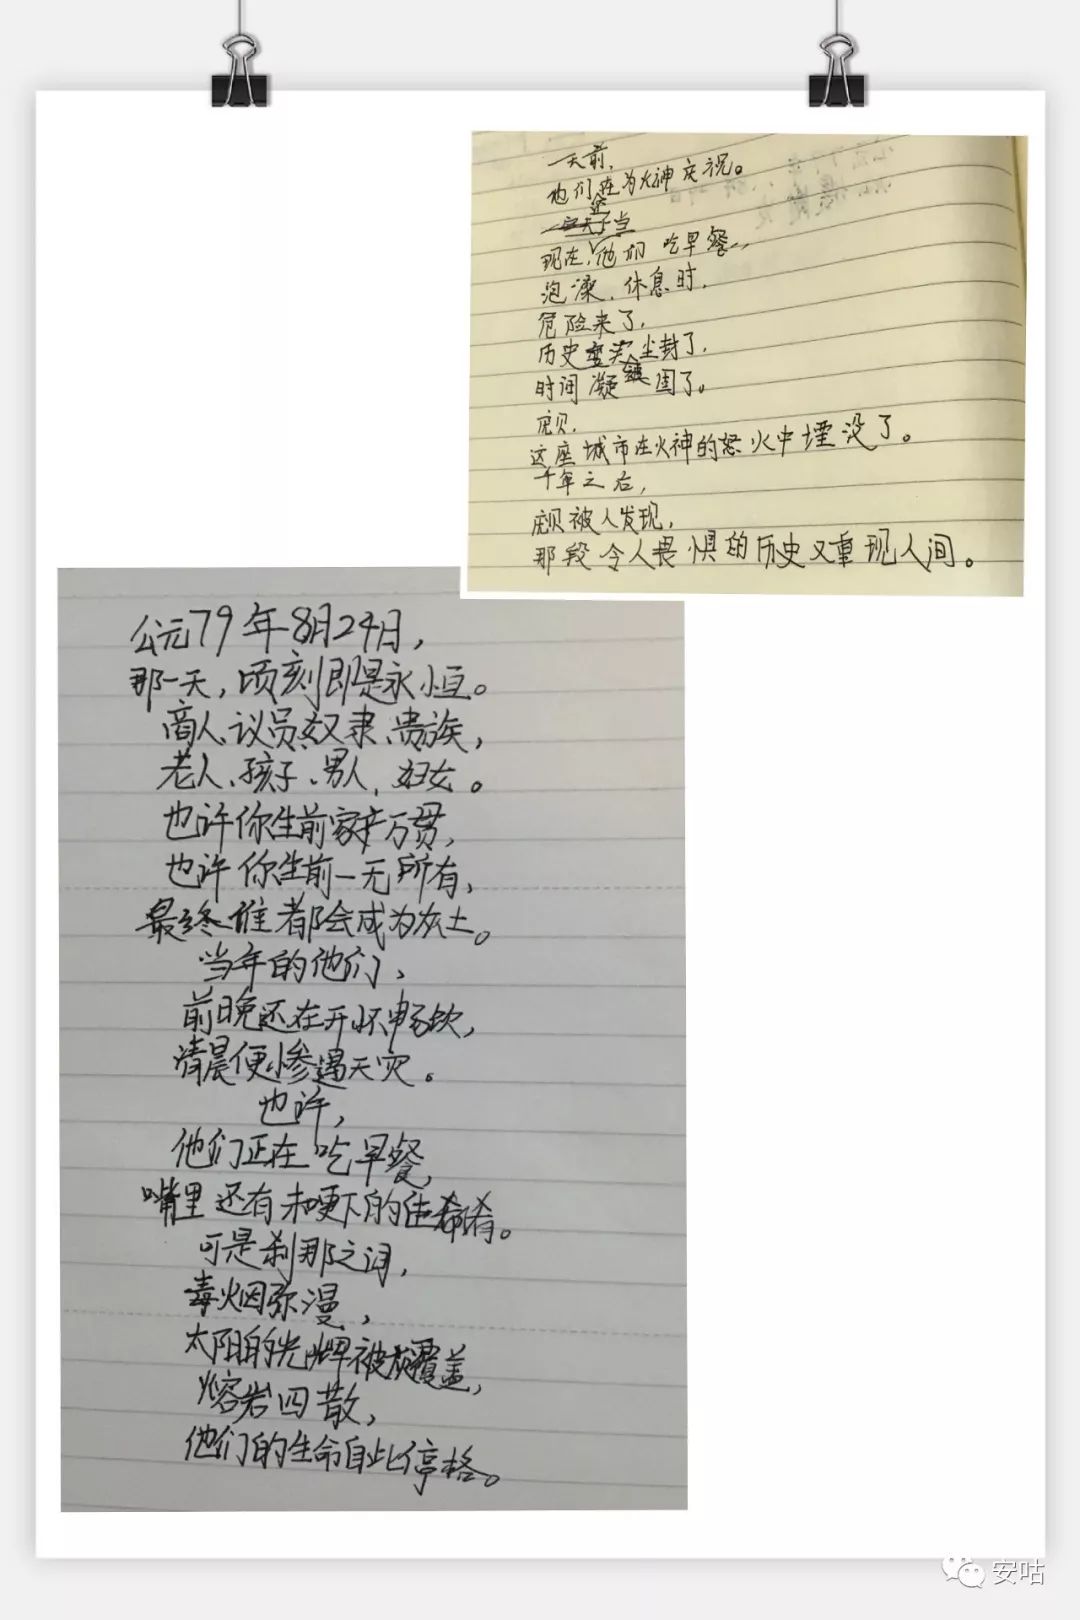 一天前，
他们在为火神庆祝。
现在，他们还吃早餐、
泡澡、休息时，
危险来了，
历史尘封了，
时间凝固了。
庞贝，
这座城市在火神的怒火中堙没了。
千年之后，
庞贝被人发现，
那段令人畏惧的历史又重现人间。
公元79年8月24日，
那一天，顷刻即是永恒。
商人、议员、奴隶、贵族，
老人、孩子、男人、妇女。
也许你生前家产万贯，
也许你生前一无所有，
最终谁都会成为灰土。
当年的他们，
前日晚还在开怀畅饮，
清晨便惨遇天灾。
也许，
他们正在吃早餐，
嘴里还有未哽下的佳肴。
可是刹那之间，
毒烟弥漫，
太阳的光辉被覆盖，
熔岩四散，
他们的生命自此停格。
安咕